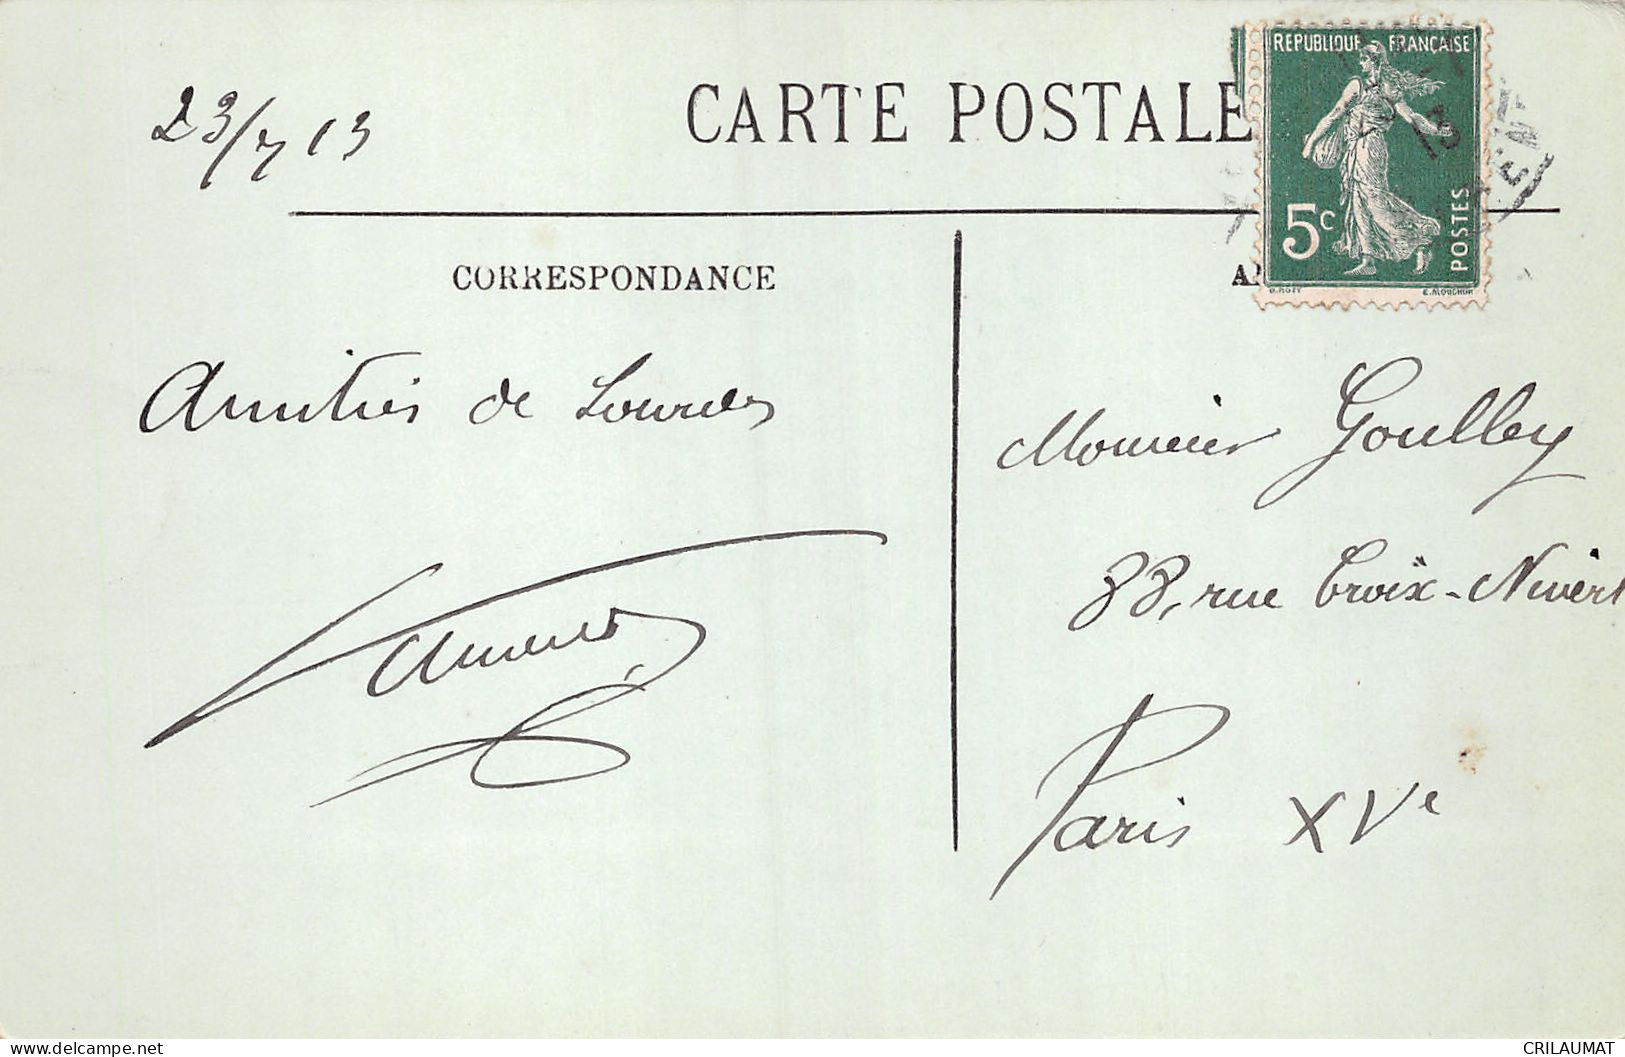 CARTE POSTALE
23/7 13
REPUBLIQUE FRANÇAISE
5c
POSTES
O. ROTY E. MOUCHON
CORRESPONDANCE
Amitiés de Lourdes
Monsieur Goulley
33, rue Croix-Nivert
Paris XVe
delcampe.net
CRILAUMAT